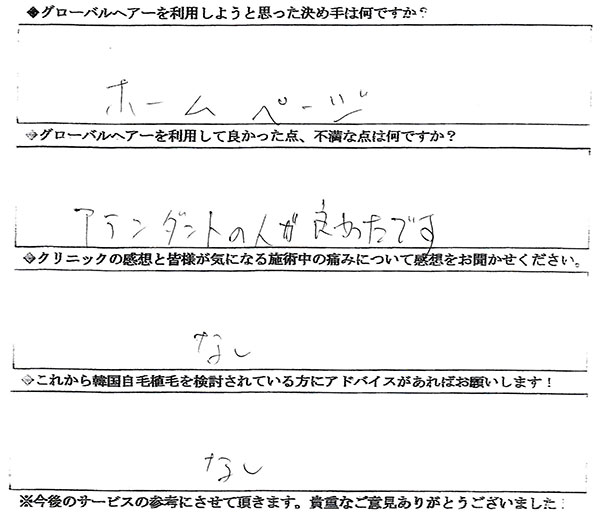 ◆グローバルヘアーを利用しようと思った決め手は何ですか?
ホームページ
◆グローバルヘアーを利用して良かった点、不満な点は何ですか?
アテンダントの人が良かったです
◆クリニックの感想と皆様が気になる施術中の痛みについて感想をお聞かせください。
なし
◆これから韓国自毛植毛を検討されている方にアドバイスがあればお願いします!
なし
※今後のサービスの参考にさせて頂きます。貴重なご意見ありがとうございました!